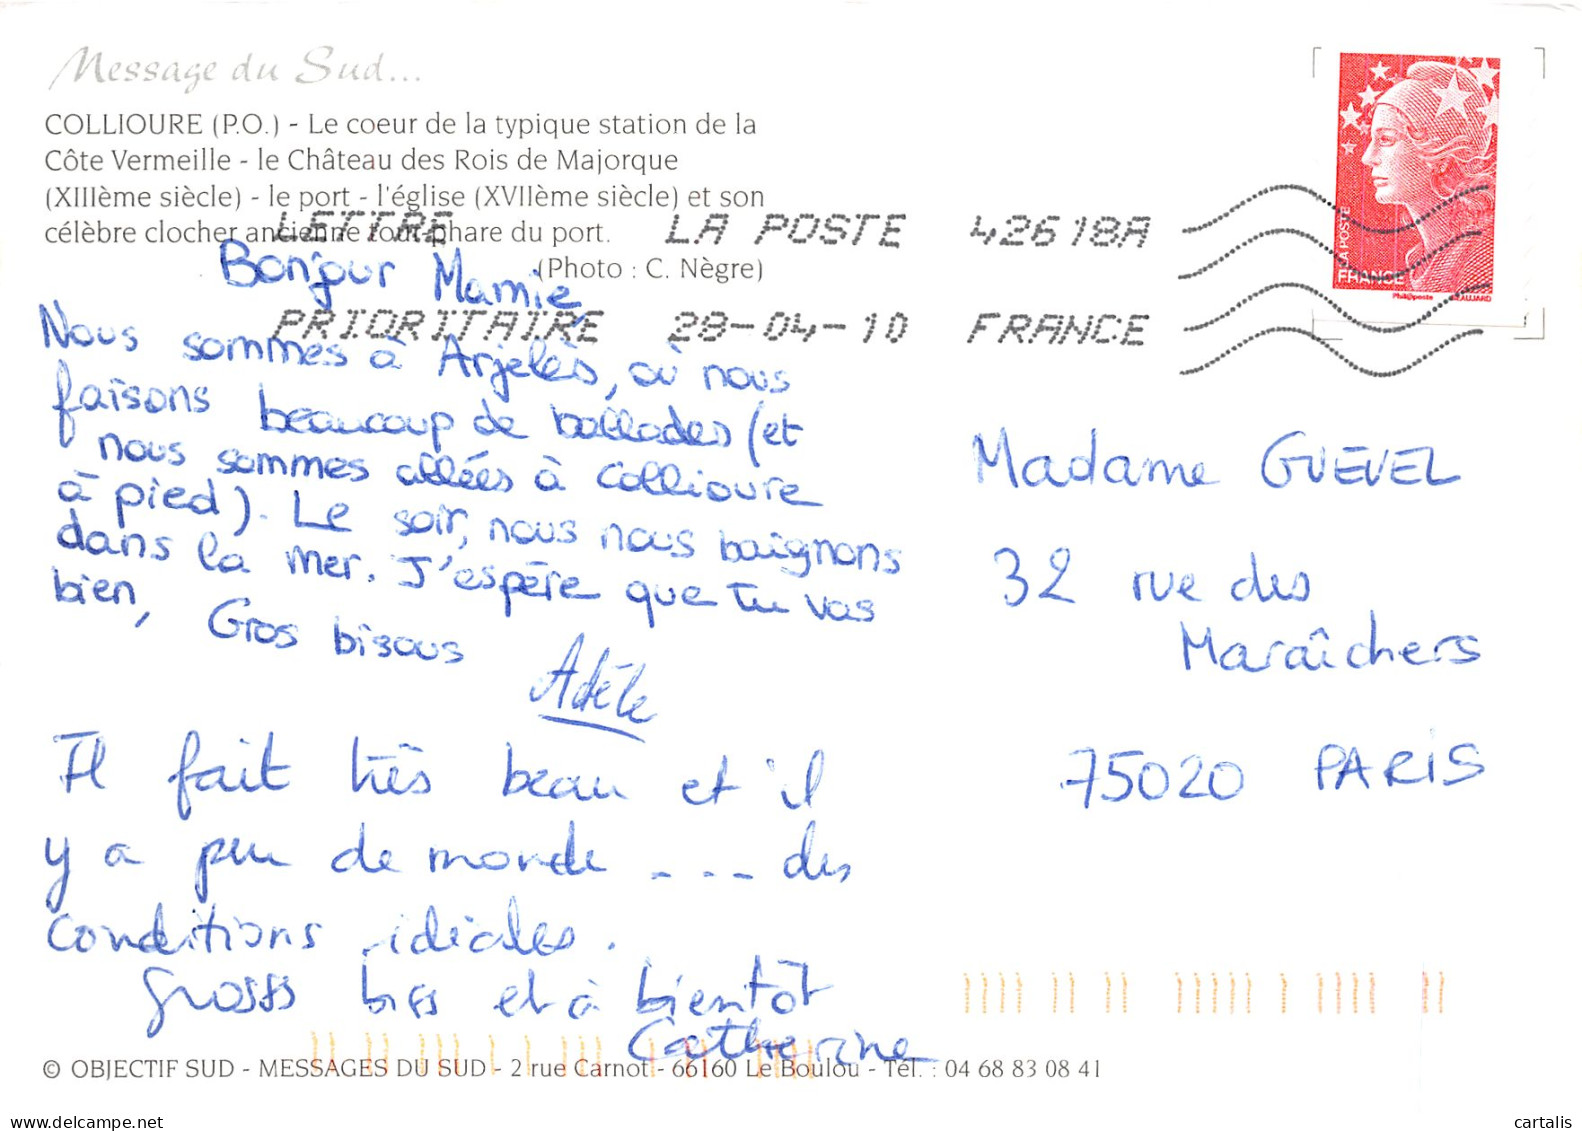 Message du Sud...
COLLIOURE (P.O.) - Le coeur de la typique station de la
Côte Vermeille - le Château des Rois de Majorque
(XIIIème siècle) - le port - l'église (XVIIème siècle) et son
célèbre clocher ancienne tour-phare du port.
(Photo : C. Nègre)
LETTRE LA POSTE 42618A
PRIORITAIRE 28-04-10 FRANCE
LA POSTE
FRANCE
Phil@poste
Bonjour Mamie,
Nous sommes à Arjelès, où nous
faisons beaucoup de ballades (et
nous sommes allées à Collioure
à pied). Le soir, nous nous baignons
dans la mer. J'espère que tu vas
bien, Gros bisous
Adèle
Il fait très beau et il
y a peu de monde --- des
conditions idéales.
grosses bises et à bientôt
Catherine
Madame GUEVEL
32 rue des
Maraîchers
75020 PARIS
© OBJECTIF SUD - MESSAGES DU SUD - 2 rue Carnot - 66160 Le Boulou - Tél. : 04 68 83 08 41
www.delcampe.net
cartalis